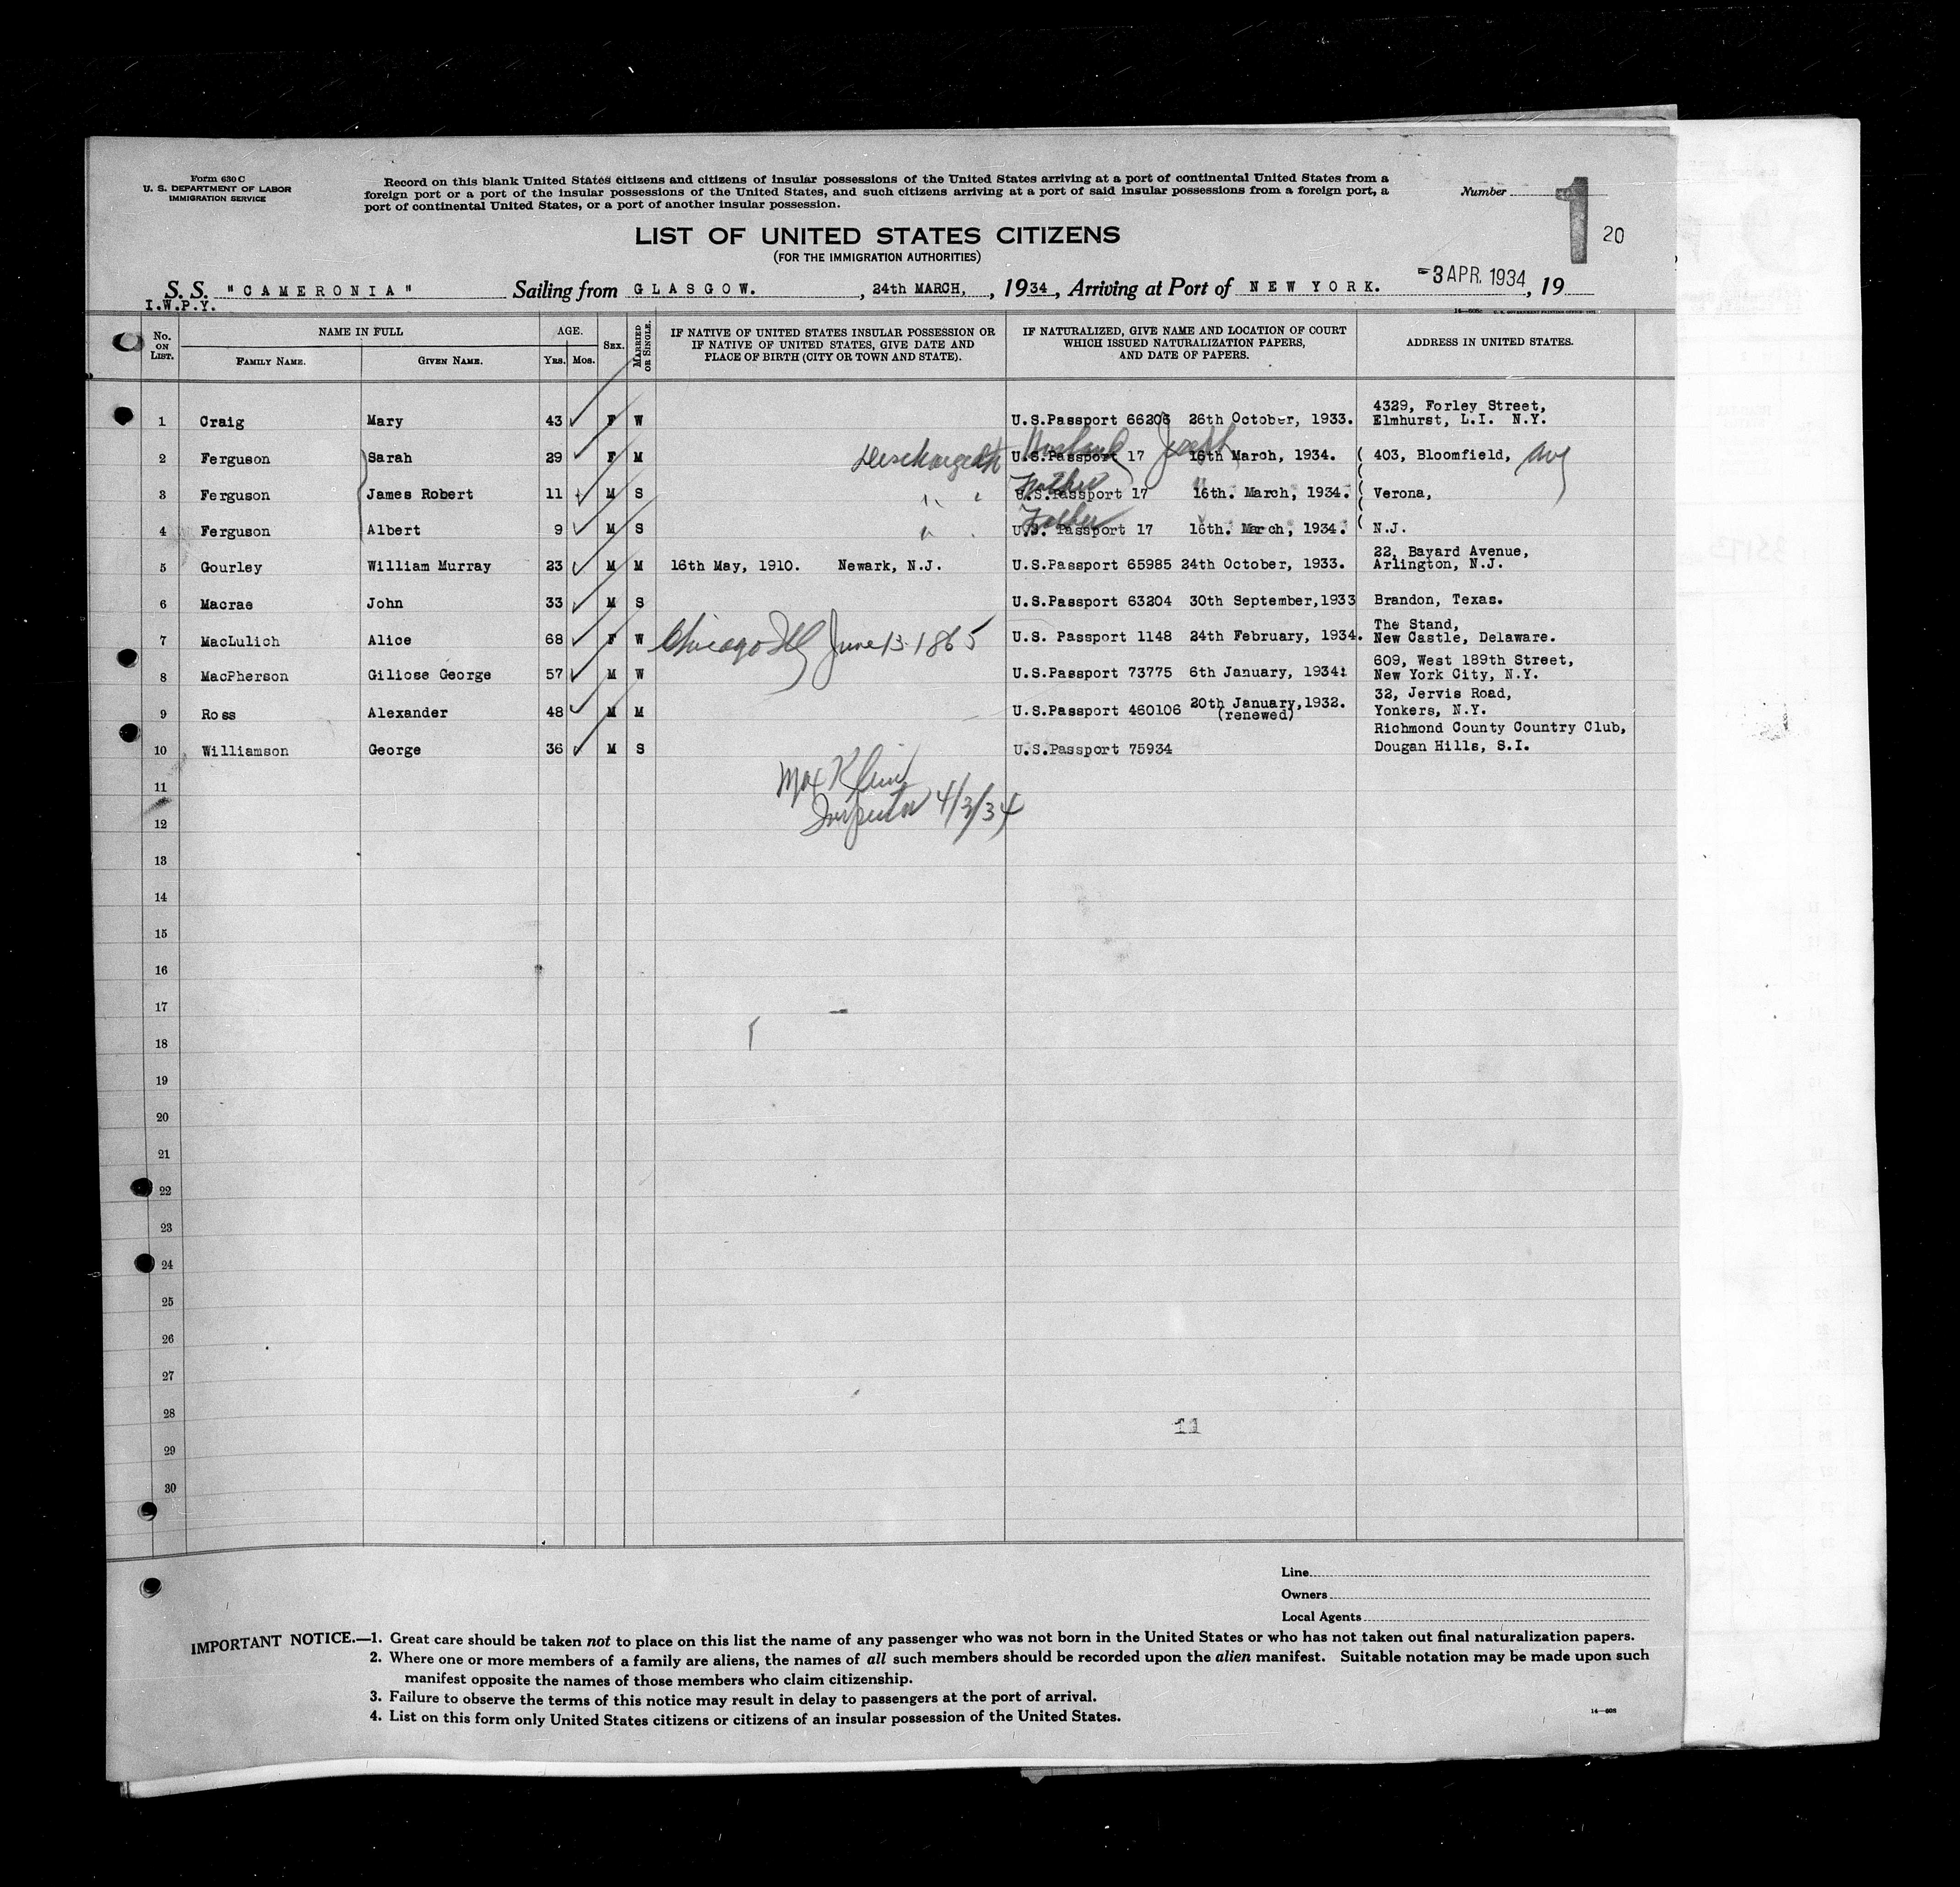 Form 630 C
U. S. DEPARTMENT OF LABOR
IMMIGRATION SERVICE
Record on this blank United States citizens and citizens of insular possessions of the United States arriving at a port of continental United States from a
foreign port or a port of the insular possessions of the United States, and such citizens arriving at a port of said insular possessions from a foreign port, a
port of continental United States, or a port of another insular possession.
Number 1 20
LIST OF UNITED STATES CITIZENS
(FOR THE IMMIGRATION AUTHORITIES)
S. S. "CAMERONIA" Sailing from GLASGOW. , 24th MARCH, , 1934 , Arriving at Port of NEW YORK. -3 APR. 1934 , 19
I.W.P.Y.
No. ON LIST. NAME IN FULL FAMILY NAME. GIVEN NAME. AGE. YRS. MOS. SEX. MARRIED OR SINGLE. IF NATIVE OF UNITED STATES INSULAR POSSESSION OR IF NATIVE OF UNITED STATES, GIVE DATE AND PLACE OF BIRTH (CITY OR TOWN AND STATE). IF NATURALIZED, GIVE NAME AND LOCATION OF COURT WHICH ISSUED NATURALIZATION PAPERS, AND DATE OF PAPERS. ADDRESS IN UNITED STATES.
1 Craig Mary 43 F W U.S.Passport 66206 26th October, 1933. 4329, Forley Street, Elmhurst, L.I. N.Y.
Husband Joseph
2 Ferguson Sarah 29 F M U.S.Passport 17 16th March, 1934. ( 403, Bloomfield, Ave
Father
3 Ferguson James Robert 11 M S " " U.S.Passport 17 16th. March, 1934. ( Verona,
Father
4 Ferguson Albert 9 M S " U.S. Passport 17 16th. March, 1934. ( N.J.
5 Gourley William Murray 23 M M 16th May, 1910. Newark, N.J. U.S.Passport 65985 24th October, 1933. 22, Bayard Avenue, Arlington, N.J.
6 Macrae John 33 M S U.S.Passport 63204 30th September,1933 Brandon, Texas.
7 MacLulich Alice 68 F W Chicago Ill June 13-1865 U.S. Passport 1148 24th February, 1934. The Stand, New Castle, Delaware.
8 MacPherson Giliose George 57 M W U.S.Passport 73775 6th January, 1934. 609, West 189th Street, New York City, N.Y.
9 Ross Alexander 48 M M U.S.Passport 460106 20th January,1932. (renewed) 32, Jervis Road, Yonkers, N.Y.
10 Williamson George 36 M S U.S.Passport 75934 Richmond County Country Club, Dougan Hills, S.I.
Max Klein
Inspector 4/3/34
11
12
13
14
15
16
17
18
19
20
21
22
23
24
25
26
27
28
11
29
30
Line
Owners
Local Agents
IMPORTANT NOTICE.—1. Great care should be taken not to place on this list the name of any passenger who was not born in the United States or who has not taken out final naturalization papers.
2. Where one or more members of a family are aliens, the names of all such members should be recorded upon the alien manifest. Suitable notation may be made upon such
manifest opposite the names of those members who claim citizenship.
3. Failure to observe the terms of this notice may result in delay to passengers at the port of arrival.
4. List on this form only United States citizens or citizens of an insular possession of the United States.